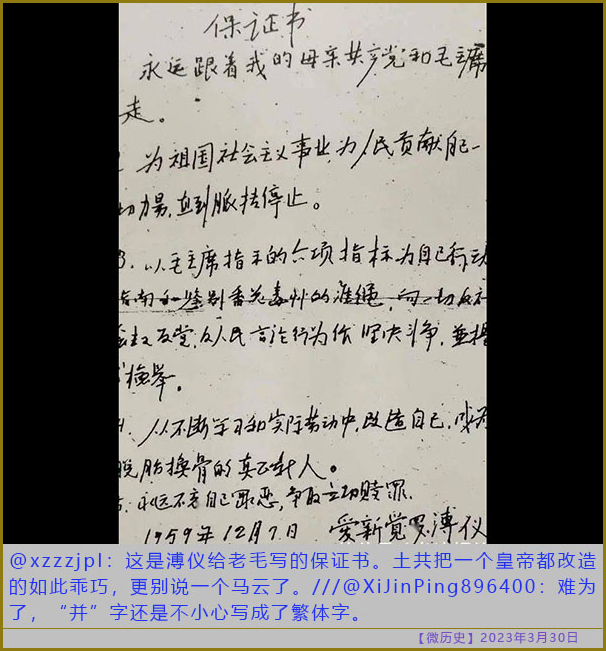 保证书
永远跟着我的母亲共产党和毛主席
走。
为祖国社会主义事业,为人民贡献自己一
切力量,直到脉搏停止。
3. 以毛主席指示的六项指标为自己行动
指南和鉴别香花毒草的准绳,向一切反社
会主义反党,反人民言论行为作坚决斗争,並提
检举。
4. 从不断学习和实际劳动中,改造自己,成为
脱胎換骨的真正新人。
5. 永远不忘自己罪恶,争取立功赎罪.
1959年12月7日 爱新觉罗溥仪
@xzzzjpl:这是溥仪给老毛写的保证书。土共把一个皇帝都改造
的如此乖巧,更别说一个马云了。///@XiJinPing896400:难为
了,“并”字还是不小心写成了繁体字。
【微历史】2023年3月30日